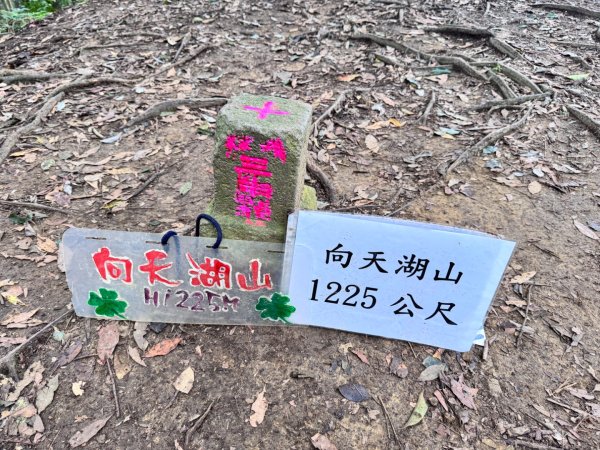 向天湖山
H1225M
向天湖山
1225 公尺